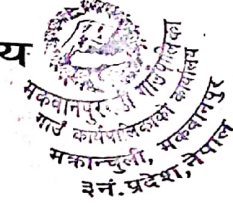 य
मकवानपुरगढी गाउँपालिका
गाउँ कार्यपालिकाको कार्यालय
मक्रान्चुली, मकवानपुर
३नं. प्रदेश, नेपाल